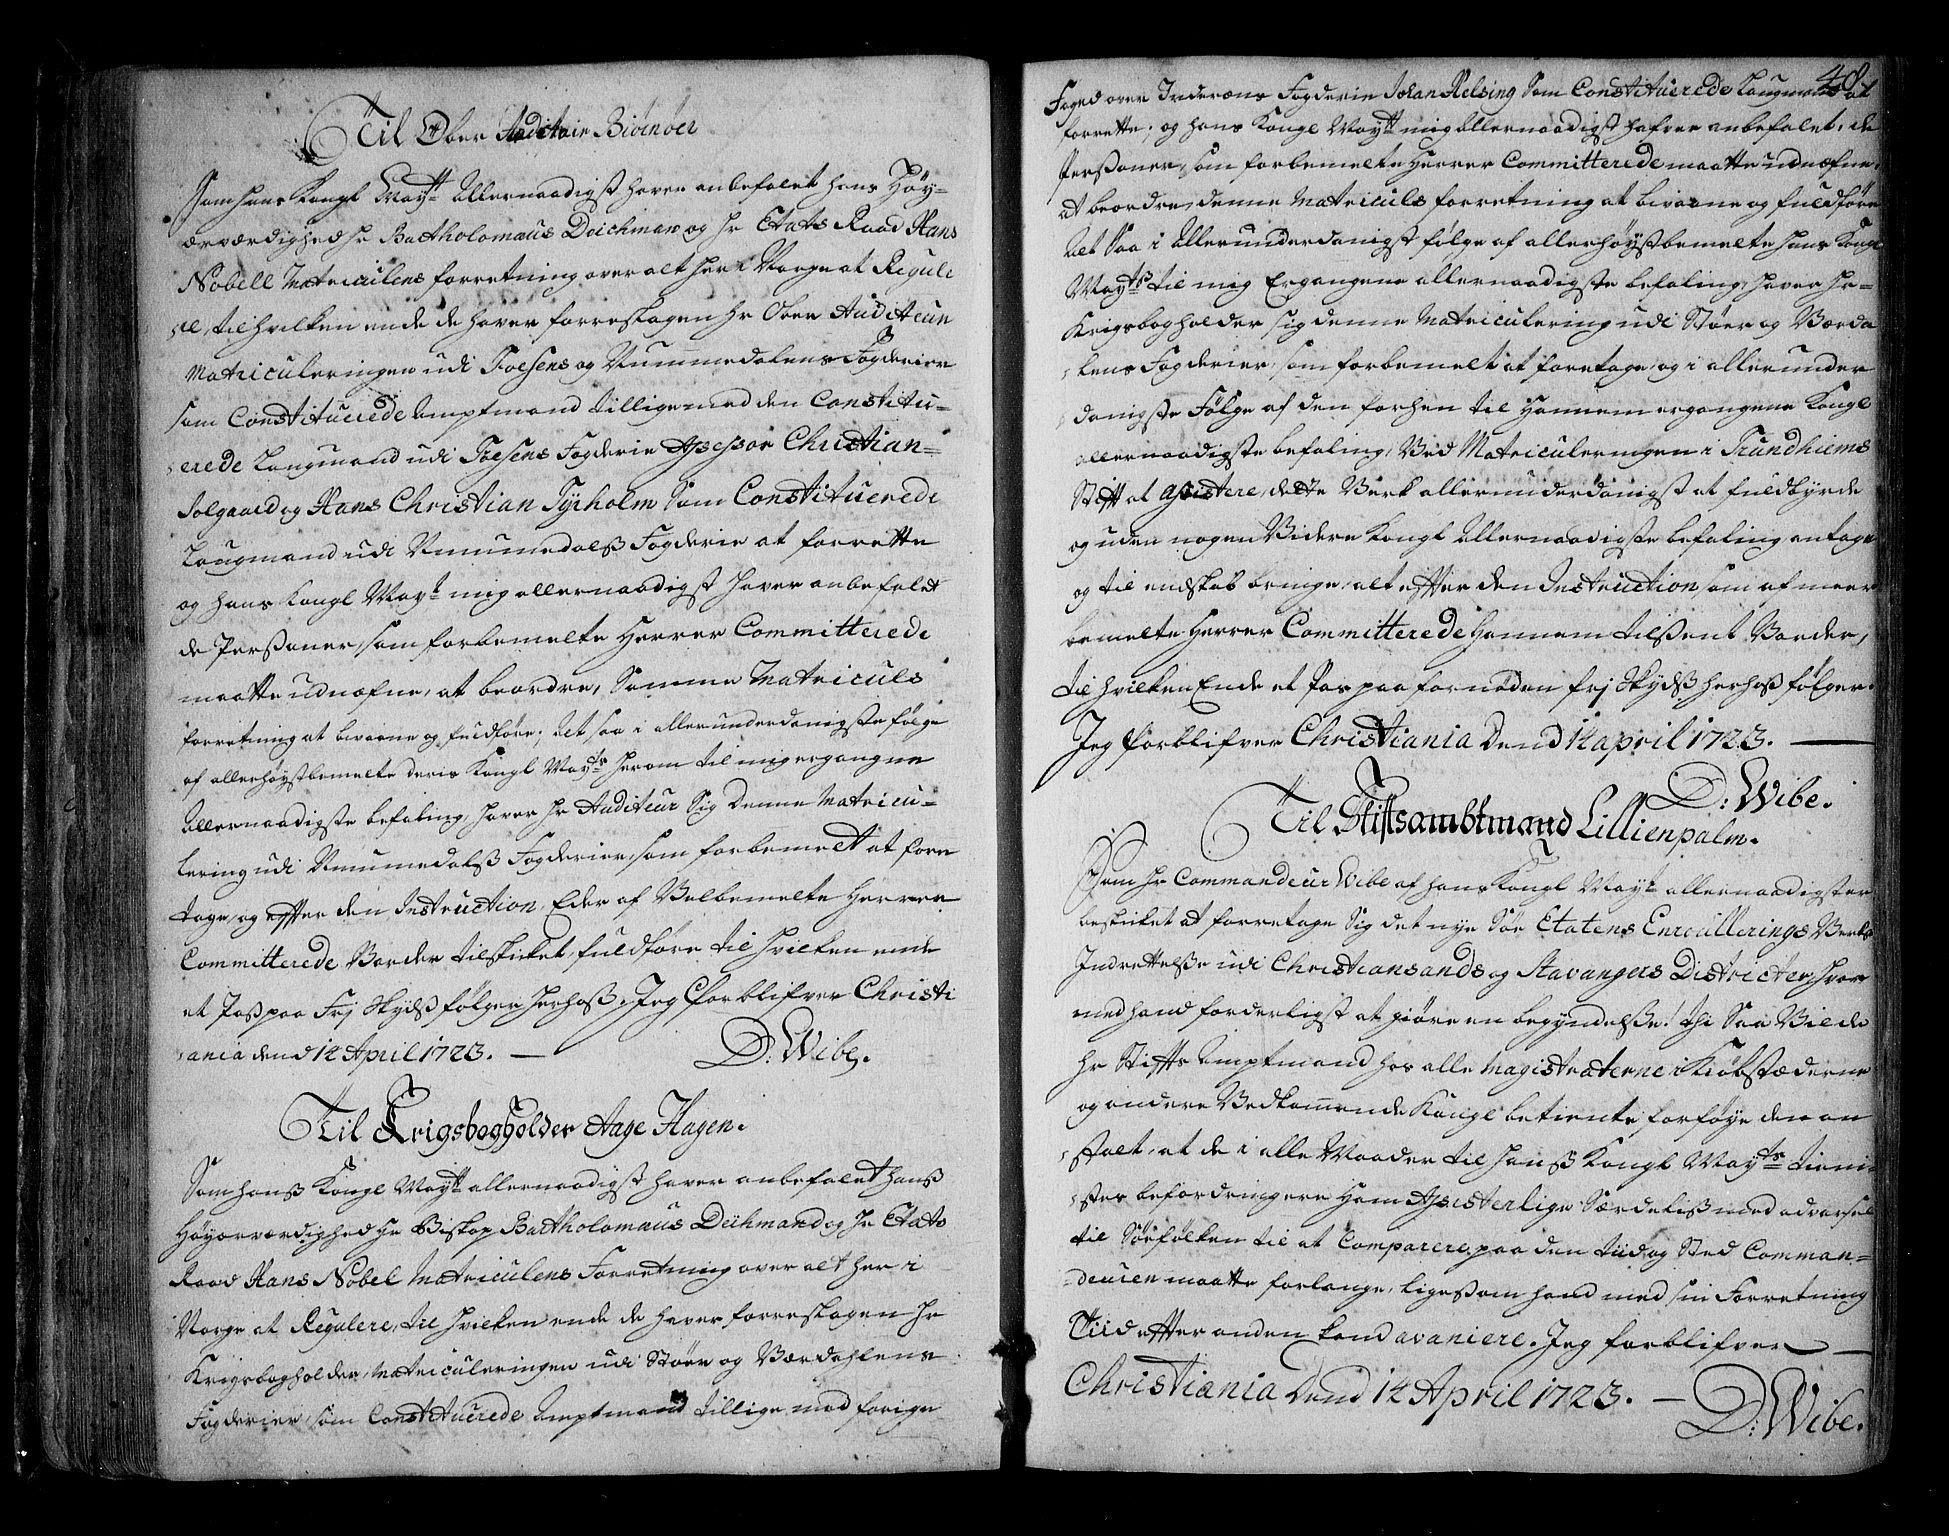 Til Ober Auditeur Biörnöer
Som hans Kongl May:tt allernaadigst haver anbefalet hans Höy=
ærværdighed hr Bartholomæus Deichman og hr Etats Raad Hans
Nobell Matriculens forretning over alt her i Norge at Regule
re, til hvilken ende de haver forreslagen hr Ober Auditeur
Matriculeringen udi Foesens og Nummedalens Fogderier
som Constituerede Amptmand tillige med den Constitu=
erede Laugmand udi Foesens Fogderie Assessor Christian
Solgaard og Hans Christian Tyrholm som Constituerede
Laugmand udi Nummedalß Fogderie at forrette
og hans Kongl May:tt mig allernaadigst haver anbefalet
de Persohner, som forbemelte Herrer Committerede
maatte udnæfne, at beordre, Samme Matriculs
forretning at bivaane og fuldföre, Det saa i allerunderdanigste fölge
af allerhöystbemelte deris Kongl May:ts herom til mig ergangne
Allernaadigste befaling, haver hr Auditeur Sig denne Matricu=
lering udi Nummedalß Fogderier, som forbemelt at fore
tage, og effter den Instruction, Eder af Velbemelte Herrer
Committerede Vorder tilskicket, fuldföre til hvilken ende
et Pass paa frj Skydß fölger herhoß. Jeg Forblifver Christi
ania dend 14 April 1723. —
D: Wibe.
Til Krigsbogholder Aage Hagen.
Som hanß Kongl May:tt allernaadigst haver anbefalet hanß
Höyærværdighed hr Biskop Bartholomæus Deichmand og hr Etats
Raad Hans Nobel Matriculens Forretning over alt her i
Norge at Regulere, til hvilken ende de haver forreslagen hr
Krigsbogholder, Matriculeringen udi Stöer og Værdahlens
Fogderier, som Constituerede Amptmand tillige med forige
48
Foged over Inderöns Fogderie Johan Helsing Som Constituerede Laugmand at
forrette, og hans Kongl May:tt mig allernaadigst hafver anbefalet, de
Persohner, som forbemelte Herrer Committerede maatte udnæfne,
at beordre, denne Matriculs forretning at bivaane og fuldföre
Det Saa i Allerunderdanigst fölge af allerhöystbemelte hans Kongl
May:ts til mig Ergangene allernaadigste befaling, haver hr=
Krigsbogholder sig denne Matriculering udi Stöer og Værda
lens Fogderier, som forbemelt at foretage, og i allerunder
danigste Fölge af den forhen til Hannem ergangene Kongl
allernaadigste befaling, Ved Matriculeringen i Trundhiems
Stifft at assistere, dette Verk allerunderdanigst at fuldbyrde
og uden nogen Videre Kongl Allernaadigste befaling antage
og til endskab bringe, alt effter den Instruction, som af meer
bemelte Herrer Committerede Hannem tilsent Vorder,
til hvilken Ende et Pas paa fornöden frj Skydß herhoß fölger.
Jeg forblifver Christiania Dend 14 april 1723. —
D: Wibe.
Til Stiftsambtmand Lillienpalm.
Som hr Commandeur Wibe af hans Kongl May:tt allernaadigster
beskicket at forretage Sig det nye Söe Etatens Enroullerings Verks
Indrettelse udi Christiansands og Stavangers Districter, hvor
med hand forderligst at giöre en begyndelße! thi Saa Vilde
hr Stiffts Amptmand hos alle Magistraterne i Kiöbstæderne
og andere Vedkommende Kongl betiente forföye den an
stalt, at de i alle Maader til hanß Kongl May:ts tieni
stes befordring ere Ham Assisterlige Særdeliß med advarsel
til Söefolken til at Comparere, paa den tiid og Sted Comman=
=deuren maatte forlange, ligesom hand med sin Forretning
Tiid effter anden kand avancere. Jeg forblifver —
Christiania Dend 14 April 1723. —
D: Wibe.